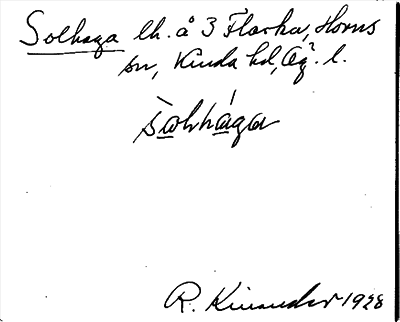 Solhaga lh. å 3 Flacka, Horns
sn, Kinda hd, Ög. l.
sòlhága
R. Kinander 1928